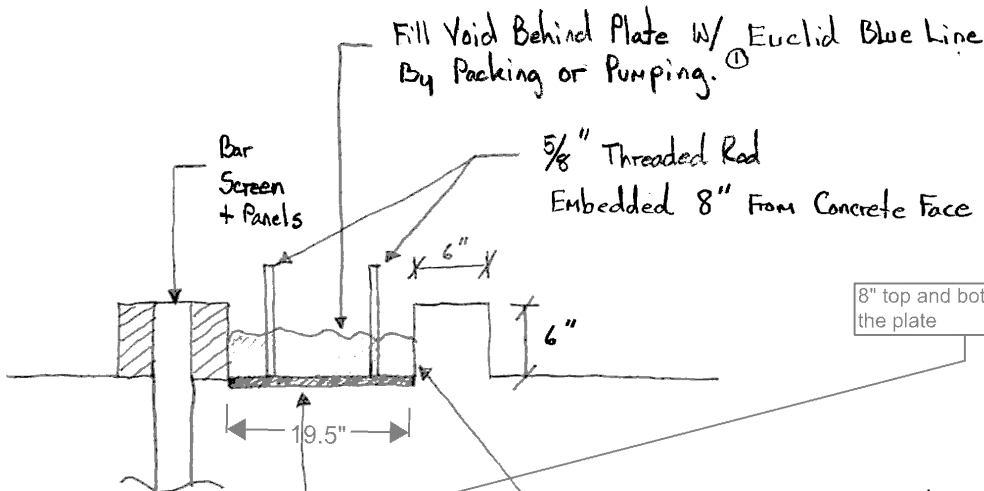 Fill Void Behind Plate W/ Euclid Blue Line
By Packing or Pumping. ①
Bar
Screen
+ Panels
5/8" Threaded Rod
Embedded 8" From Concrete Face
6"
8" top and bot
the plate
6"
19.5"